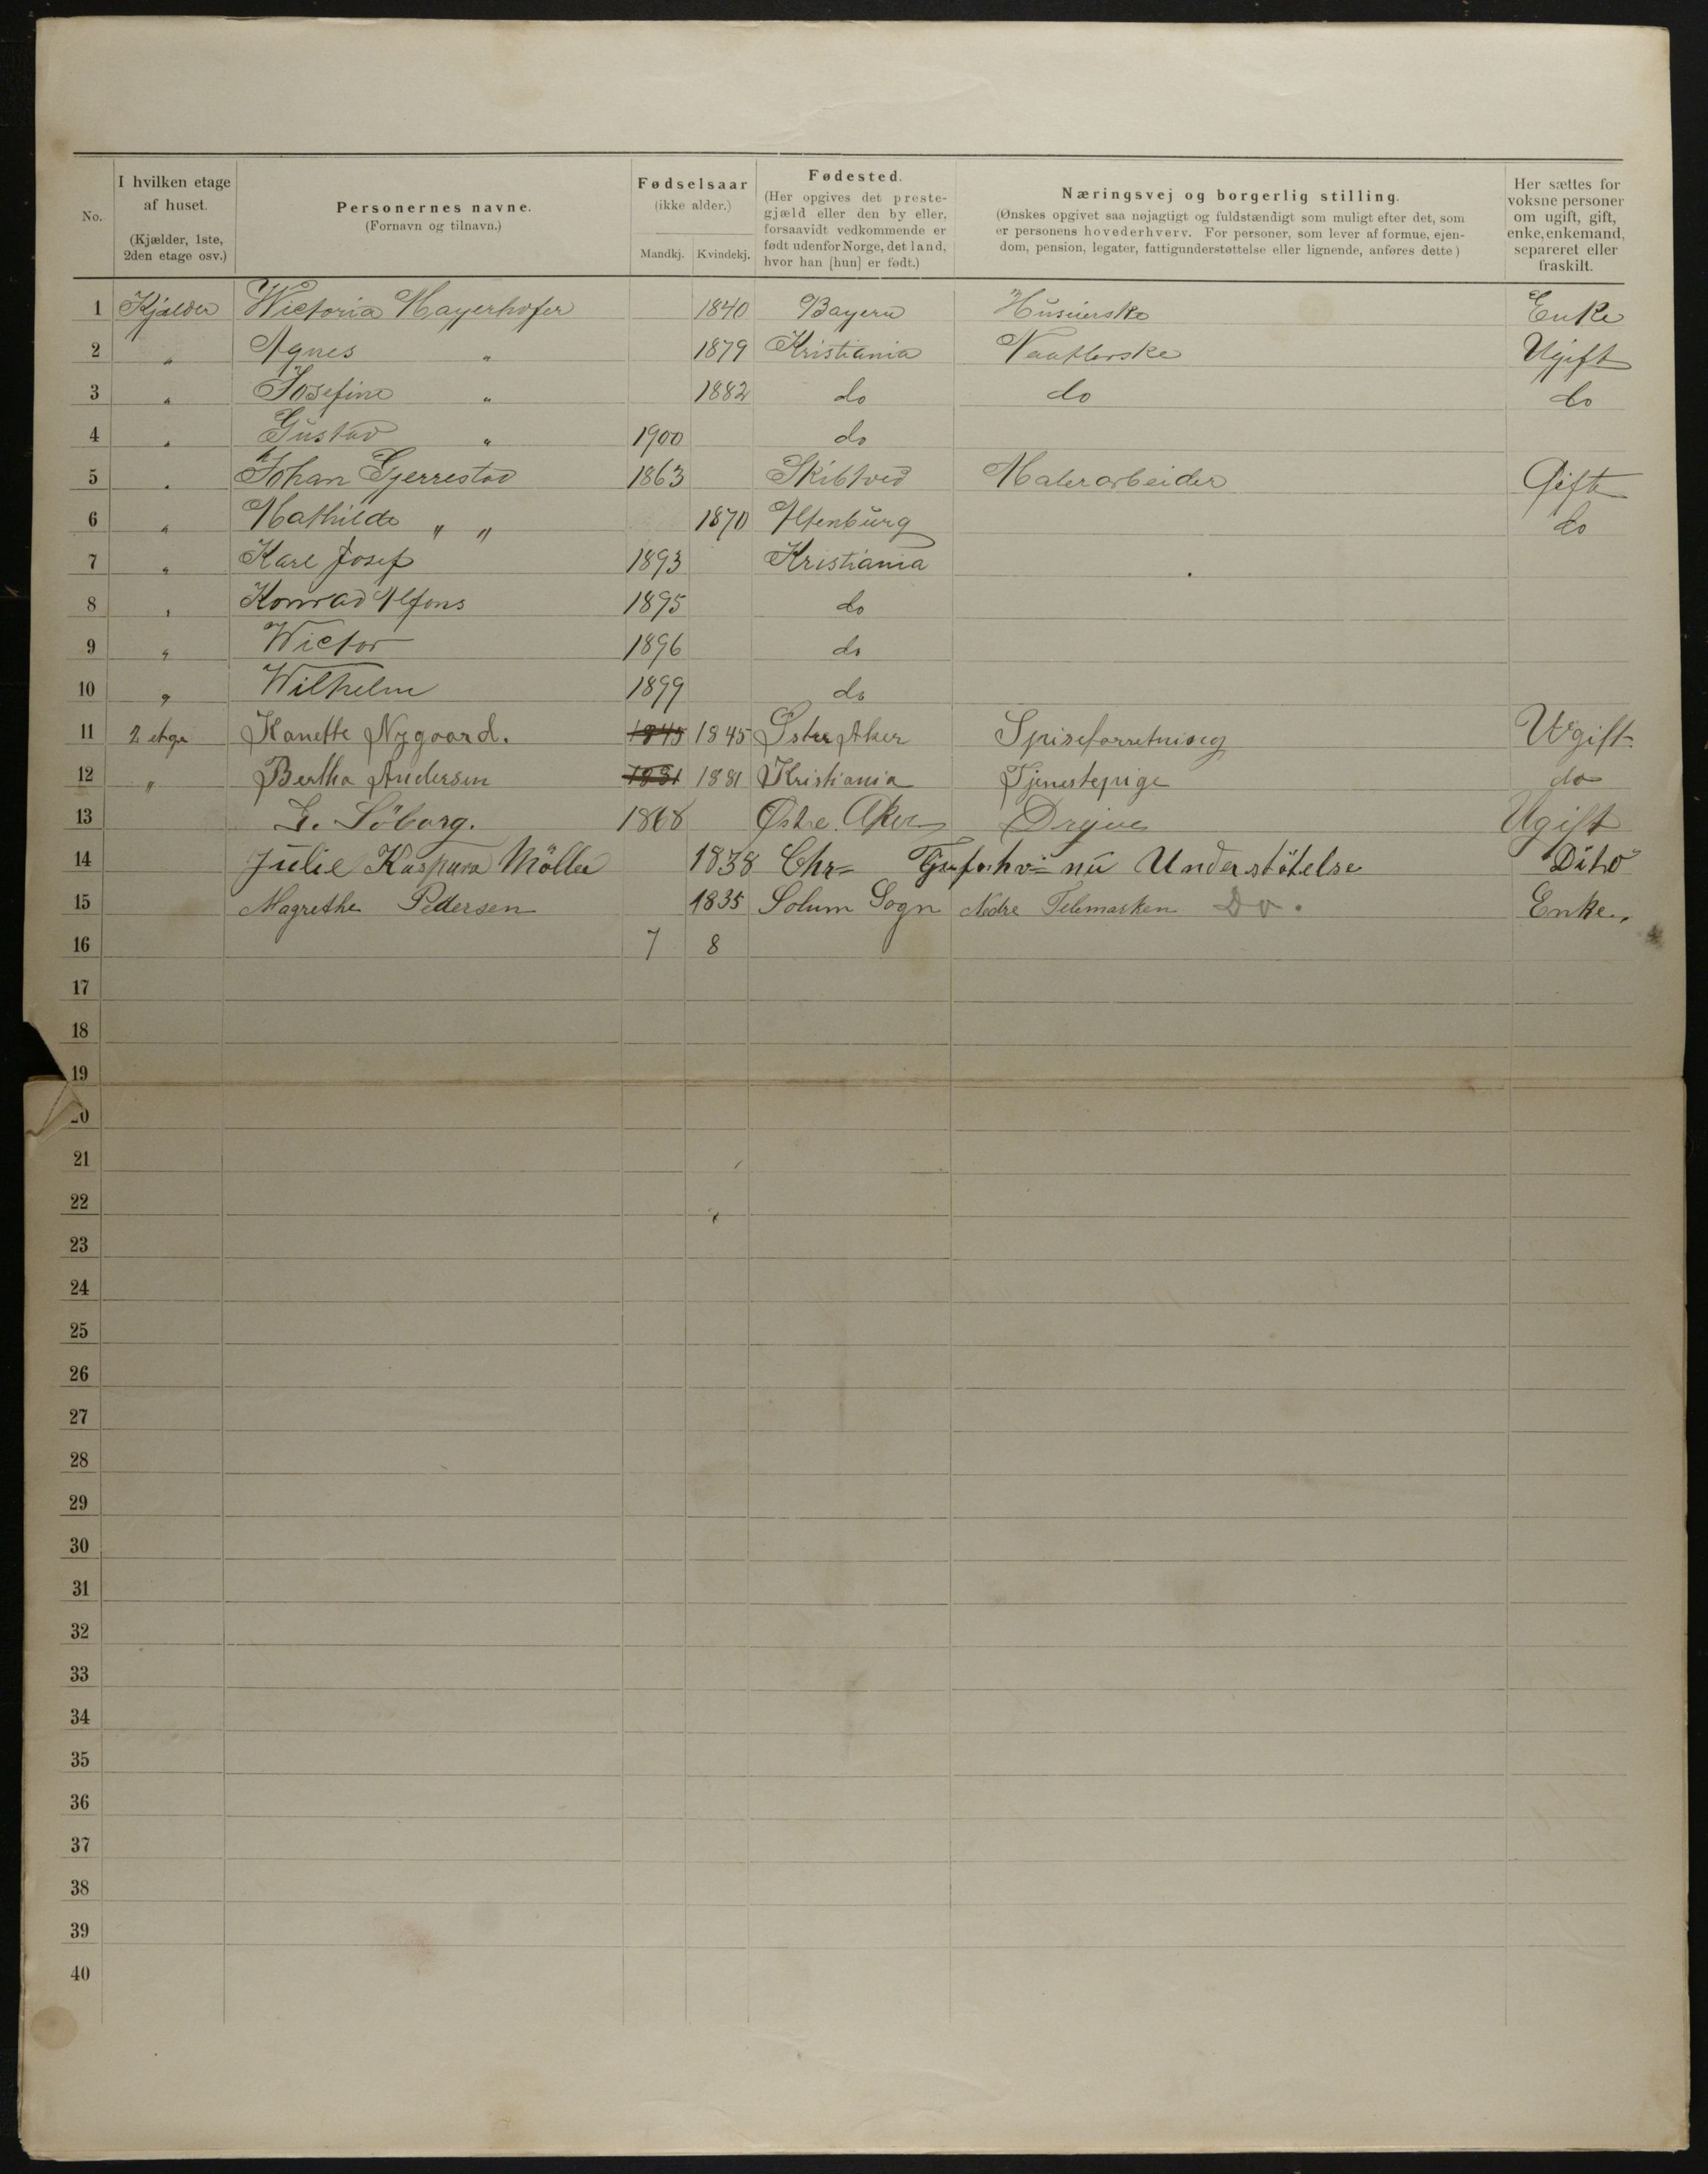 No.
I hvilken etage
af huset.
(Kjælder, 1ste,
2den etage osv.)
Personernes navne.
(Fornavn og tilnavn.)
Fødselsaar
(ikke alder.)
Mandkj. Kvindekj.
Fødested.
(Her opgives det preste-
gjæld eller den by eller,
forsaavidt vedkommende er
født udenfor Norge, det land,
hvor han [hun] er født.)
Næringsvej og borgerlig stilling.
(Ønskes opgivet saa nøjagtigt og fuldstændigt som muligt efter det, som
er personens hovederhverv. For personer, som lever af formue, ejen-
dom, pension, legater, fattigunderstøttelse eller lignende, anføres dette)
Her sættes for
voksne personer
om ugift, gift,
enke, enkemand,
separeret eller
fraskilt.
1 Kjælder Wictoria Mayerhofer 1840 Bayern Husierske Enke
2 " Agnes " 1879 Kristiania Ugift
3 " Josefine " 1882 do do do
4 " Gustav " 1900 do
5 " Johan Gjerrestad 1863 Skibtved Malerarbeider Gift
6 " Mathilde " " 1870 Altenburg do
7 " Karl Josef 1893 Kristiania
8 " Konrad Alfons 1895 do
9 " Wictor 1896 do
10 " Wilhelm 1899 do
11 2 etge Hanette Nygaard. 1845 1845 Østre Aker Spiseforretning Ugift.
12 " Bertha Andersen 1881 1881 Kristiania Tjenestepige do
13 Søborg. 1868 Østre Aker Ugift
14 Julie Kaspara Möller 1838 Chr= nu Understötelse Dito
15 Magrethe Pedersen 1835 Solum Sogn Nedre Telemarken Do. Enke.
16 7 8
17
18
19
20
21
22
23
24
25
26
27
28
29
30
31
32
33
34
35
36
37
38
39
40